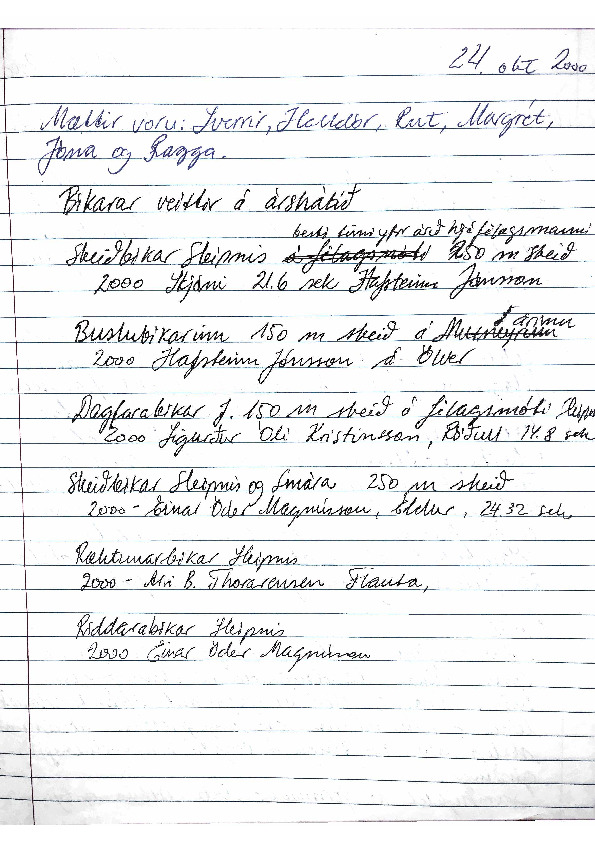 24. okt 2000
Mættir voru: Sverrir, Halldór, Rut, Margrét,
Jóna og Ragga.
Bikarar veittir á árshátíð
besti tími yfir árið hjá félagsmanni
Skeiðbikar Sleipnis á félagsmóti 250 m skeið
2000 Skjóni 21.6 sek Hafsteinn Jónsson
árinu
Buslubikarinn 150 m skeið á
2000 Hafsteinn Jónsson á Ölver
Dagfarabikar f. 150 m skeið á félagsmóti Sleipn
2000 Sigurður Óli Kristinsson, Röðull 14.8 sek
Skeiðbikar Sleipnis og Smára 250 m skeið
2000 - Einar Öder Magnússon, Eldur, 24.32 sek
Ræktunarbikar Sleipnis
2000 - B. Thorarensen Flauta,
Riddarabikar Sleipnis
2000 Einar Öder Magnússon